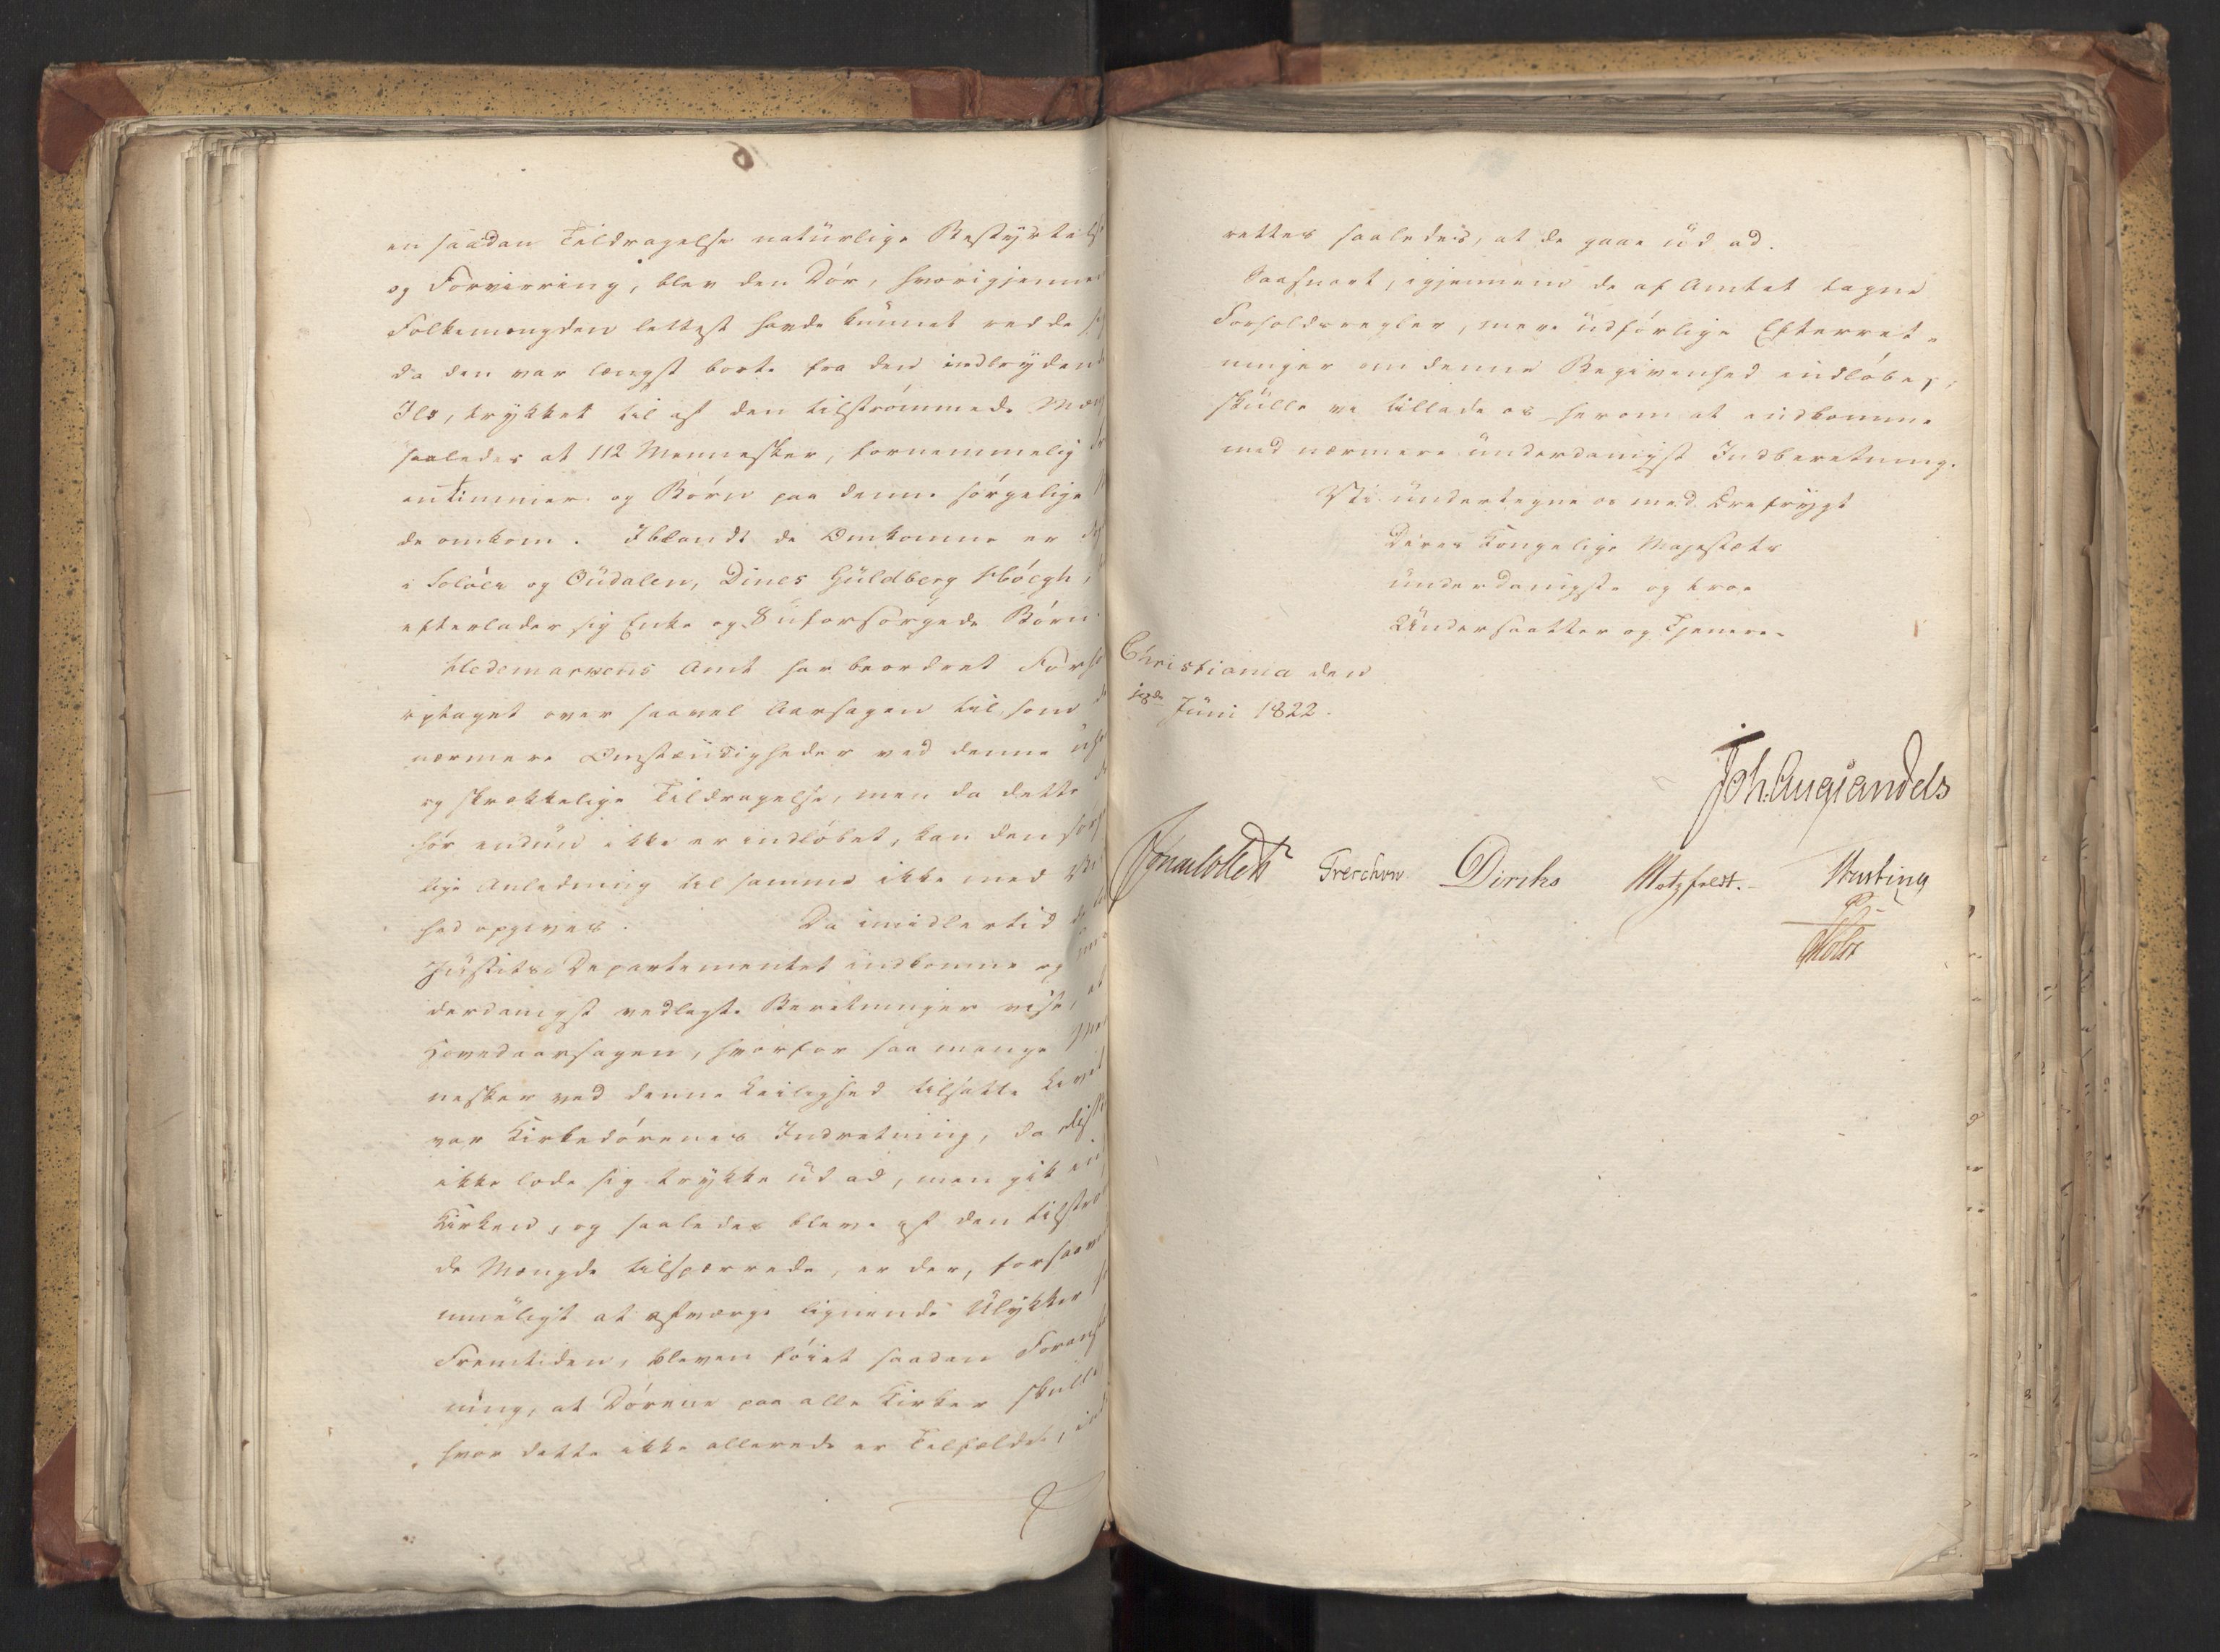 en saadan Tildragelse natürlige Bestyrtelse
og Forvirring, blev den Dör, hvorigjennem
Folkemængden lettest havde kunnet redde
da den var længst borte fra den indbrydende
Ild, trykket til af den tilströmmede
saaledes at 112 Mennesker, fornemmelig
entimmer og Börn paa denne sörgelige
de omkom. Iblandt de Omkomne er
i Solöer og Oüdalen, Dines Güldberg Höegh,
efterlader sig Enke og 8 uforsörgede Börn.
Hedemarkens Amt har beordret
optaget over saavel Aarsagen til, som
nærmere Omstændigheder ved denne
og skrækkelige Tildragelse, men da dette
hör endnü ikke er indlöbet, kan den
lige Anledning til samme ikke med
hed opgives. Da imidlertid
Justits-Departementet indkomne og
derdanigst vedlagte Beretninger vise, at
Hovedaarsagen, hvorfor saa mange
nesker ved denne Leilighed tilsatte Livet
var Kirkedörenes Indretning, da
ikke lode sig trykke üd ad, men gik
Kirken, og saaledes bleve af den
de Mængde tilspærrede, er der,
mueligt at afværge lignende Ulykker
Fremtiden, bleven föiet saadan
ning, at Dörene paa alle Kirker skulle
hvor dette ikke allerede er Tilfældet,
rettes saaledes, at de gaae üd ad.
Saasnart, igjennem de af Amtet tagne
Forholdsregler, mere üdförlige Efterret-
ninger om denne Begivenhed indlöbe,
skulle vi tillade os herom at indkomme
med nærmere ünderdanigst Indberetning.
Vi ündertegne os med Ærefrygt
Deres Kongelige Majestæts
ünderdanigste og troe
Undersaatter og Tjenere.
Christiania den
Jüni 1822.
Joh. Aug Sandels
Jonas Collett Treschow Diriks Motzfeldt. Krusting
Holst